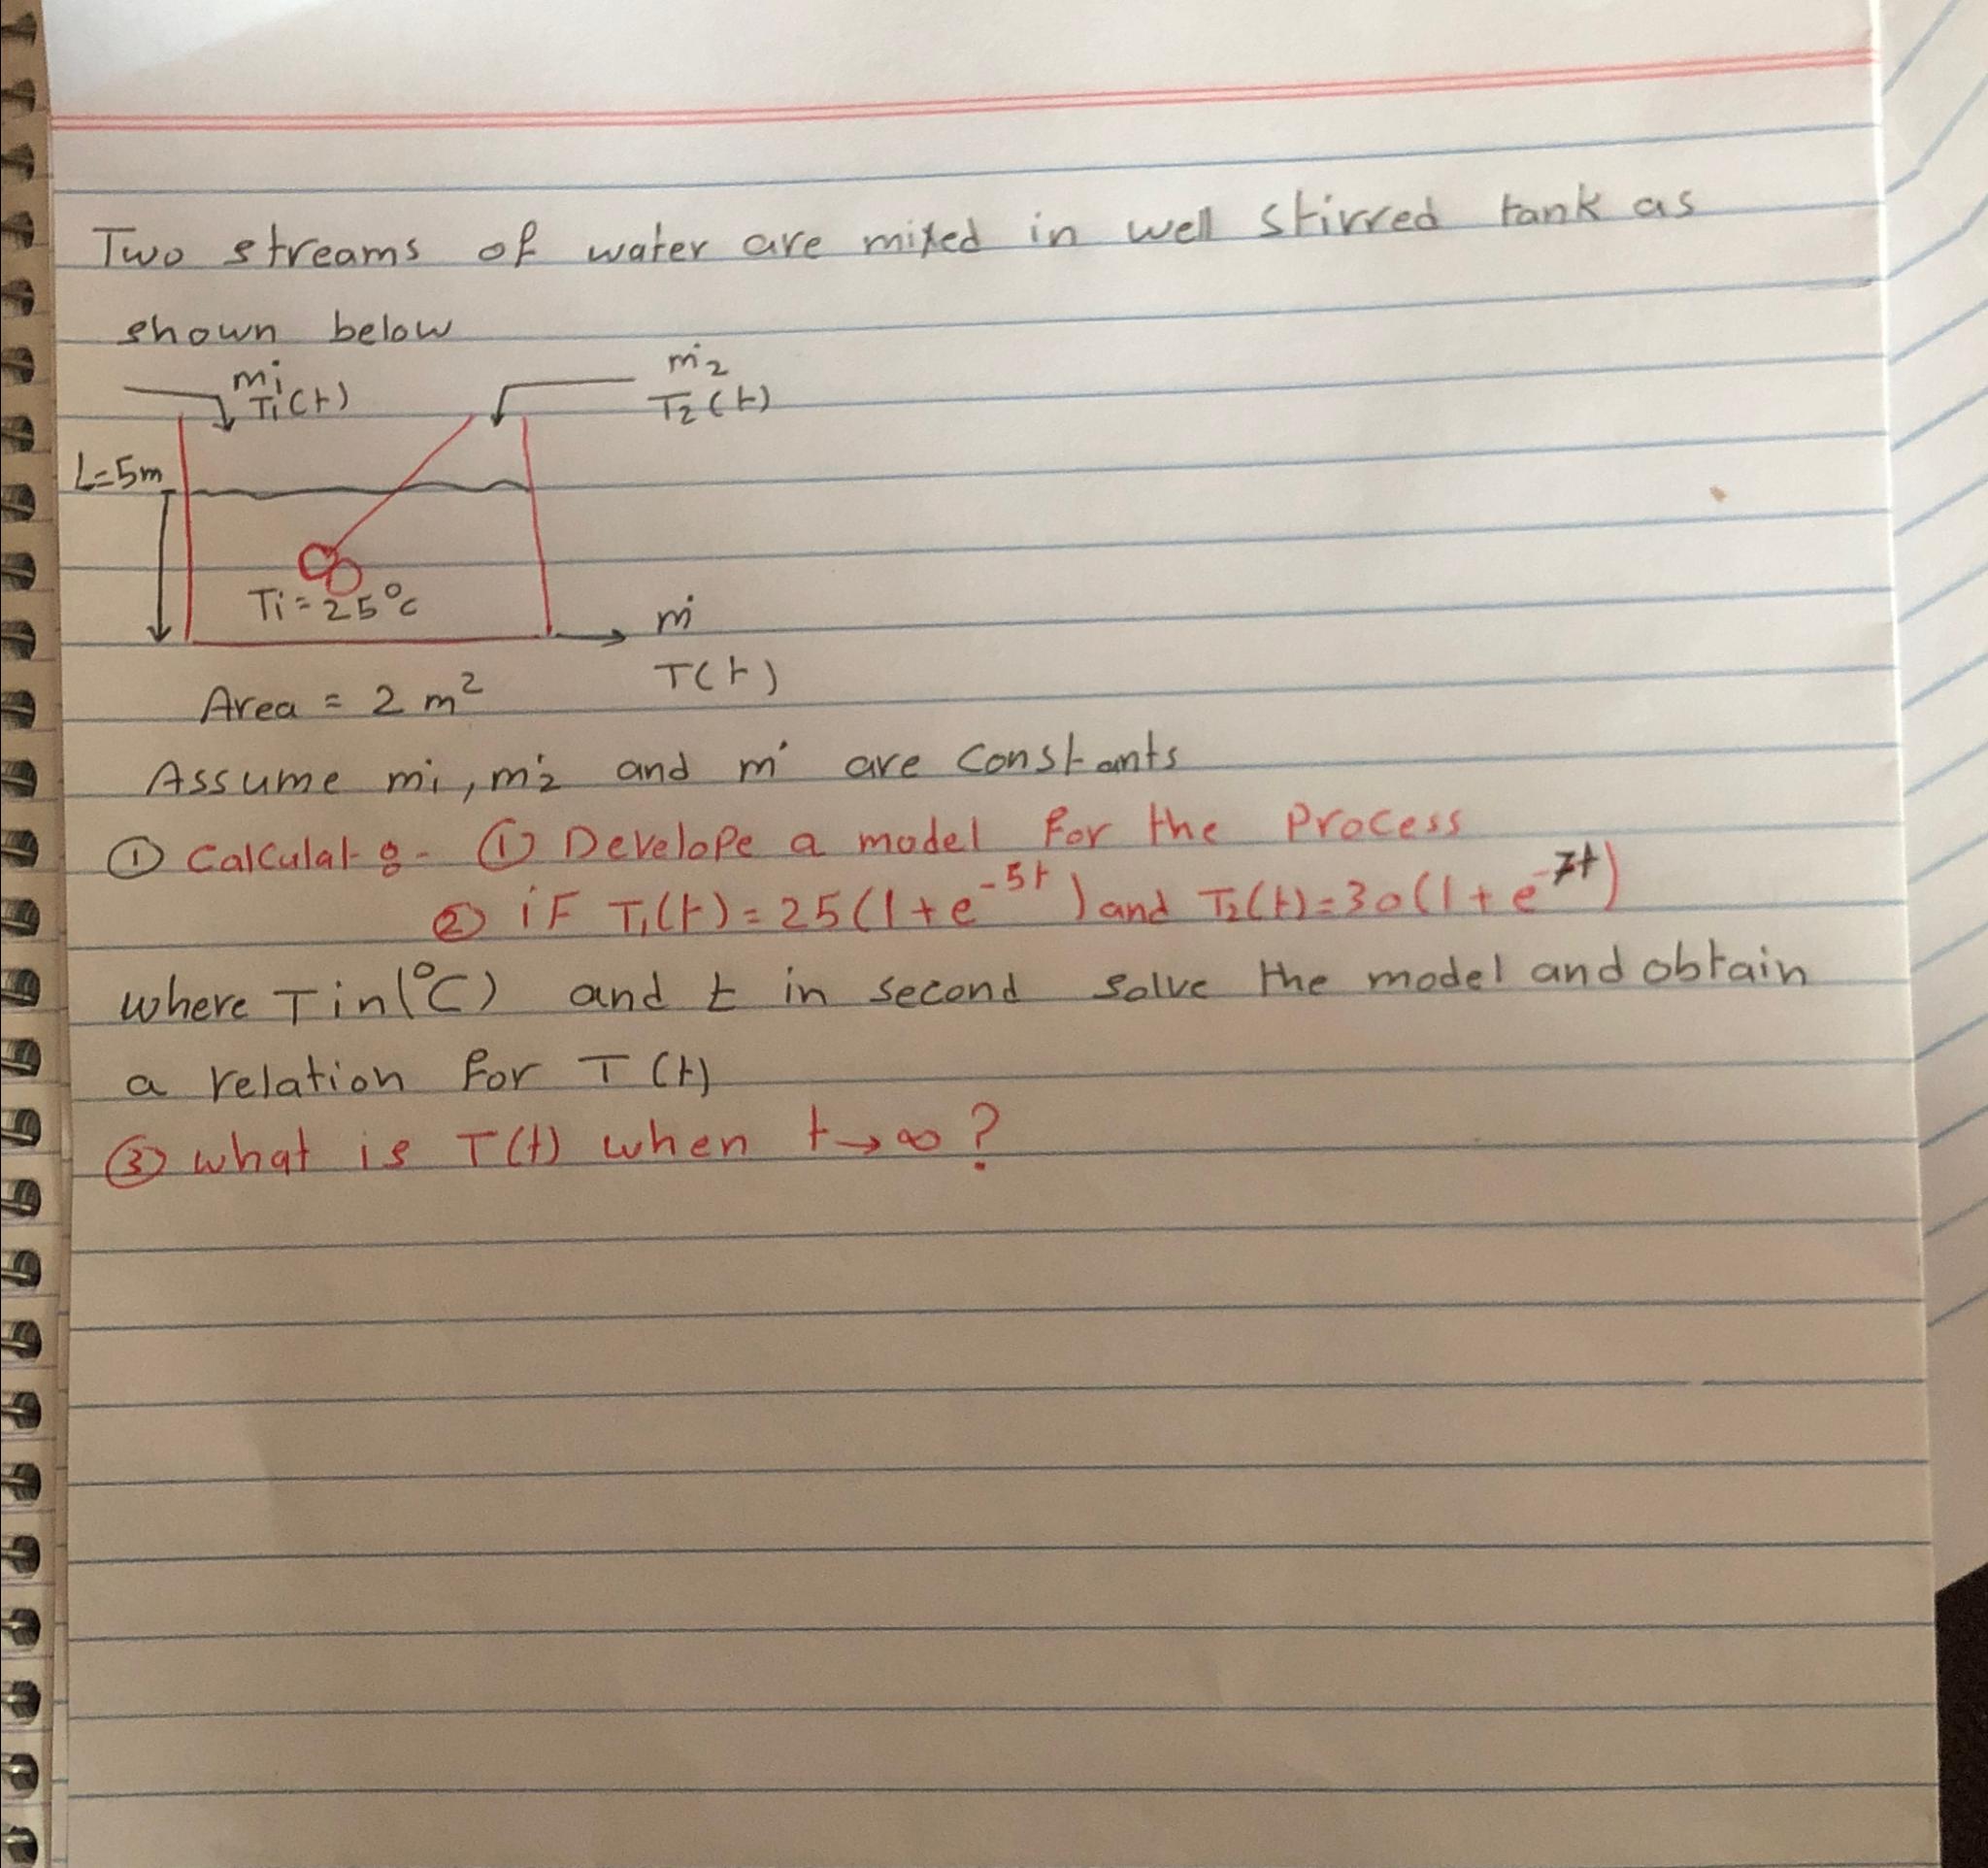 Two streams of water are mixed in well stirred tank as
shown below
ṁ1
T1(t)
ṁ2
T2(t)
L=5m
Ti=25°c
ṁ
T(t)
Area = 2 m²
Assume ṁ1, ṁ2 and ṁ are constants
① Calculat :- ① Develope a model for the Process
② if T1(t)=25(1+e^-5t) and T2(t)=30(1+e^-7t)
where T in(°C) and t in second solve the model and obtain
a relation for T(t)
③ what is T(t) when t→∞?